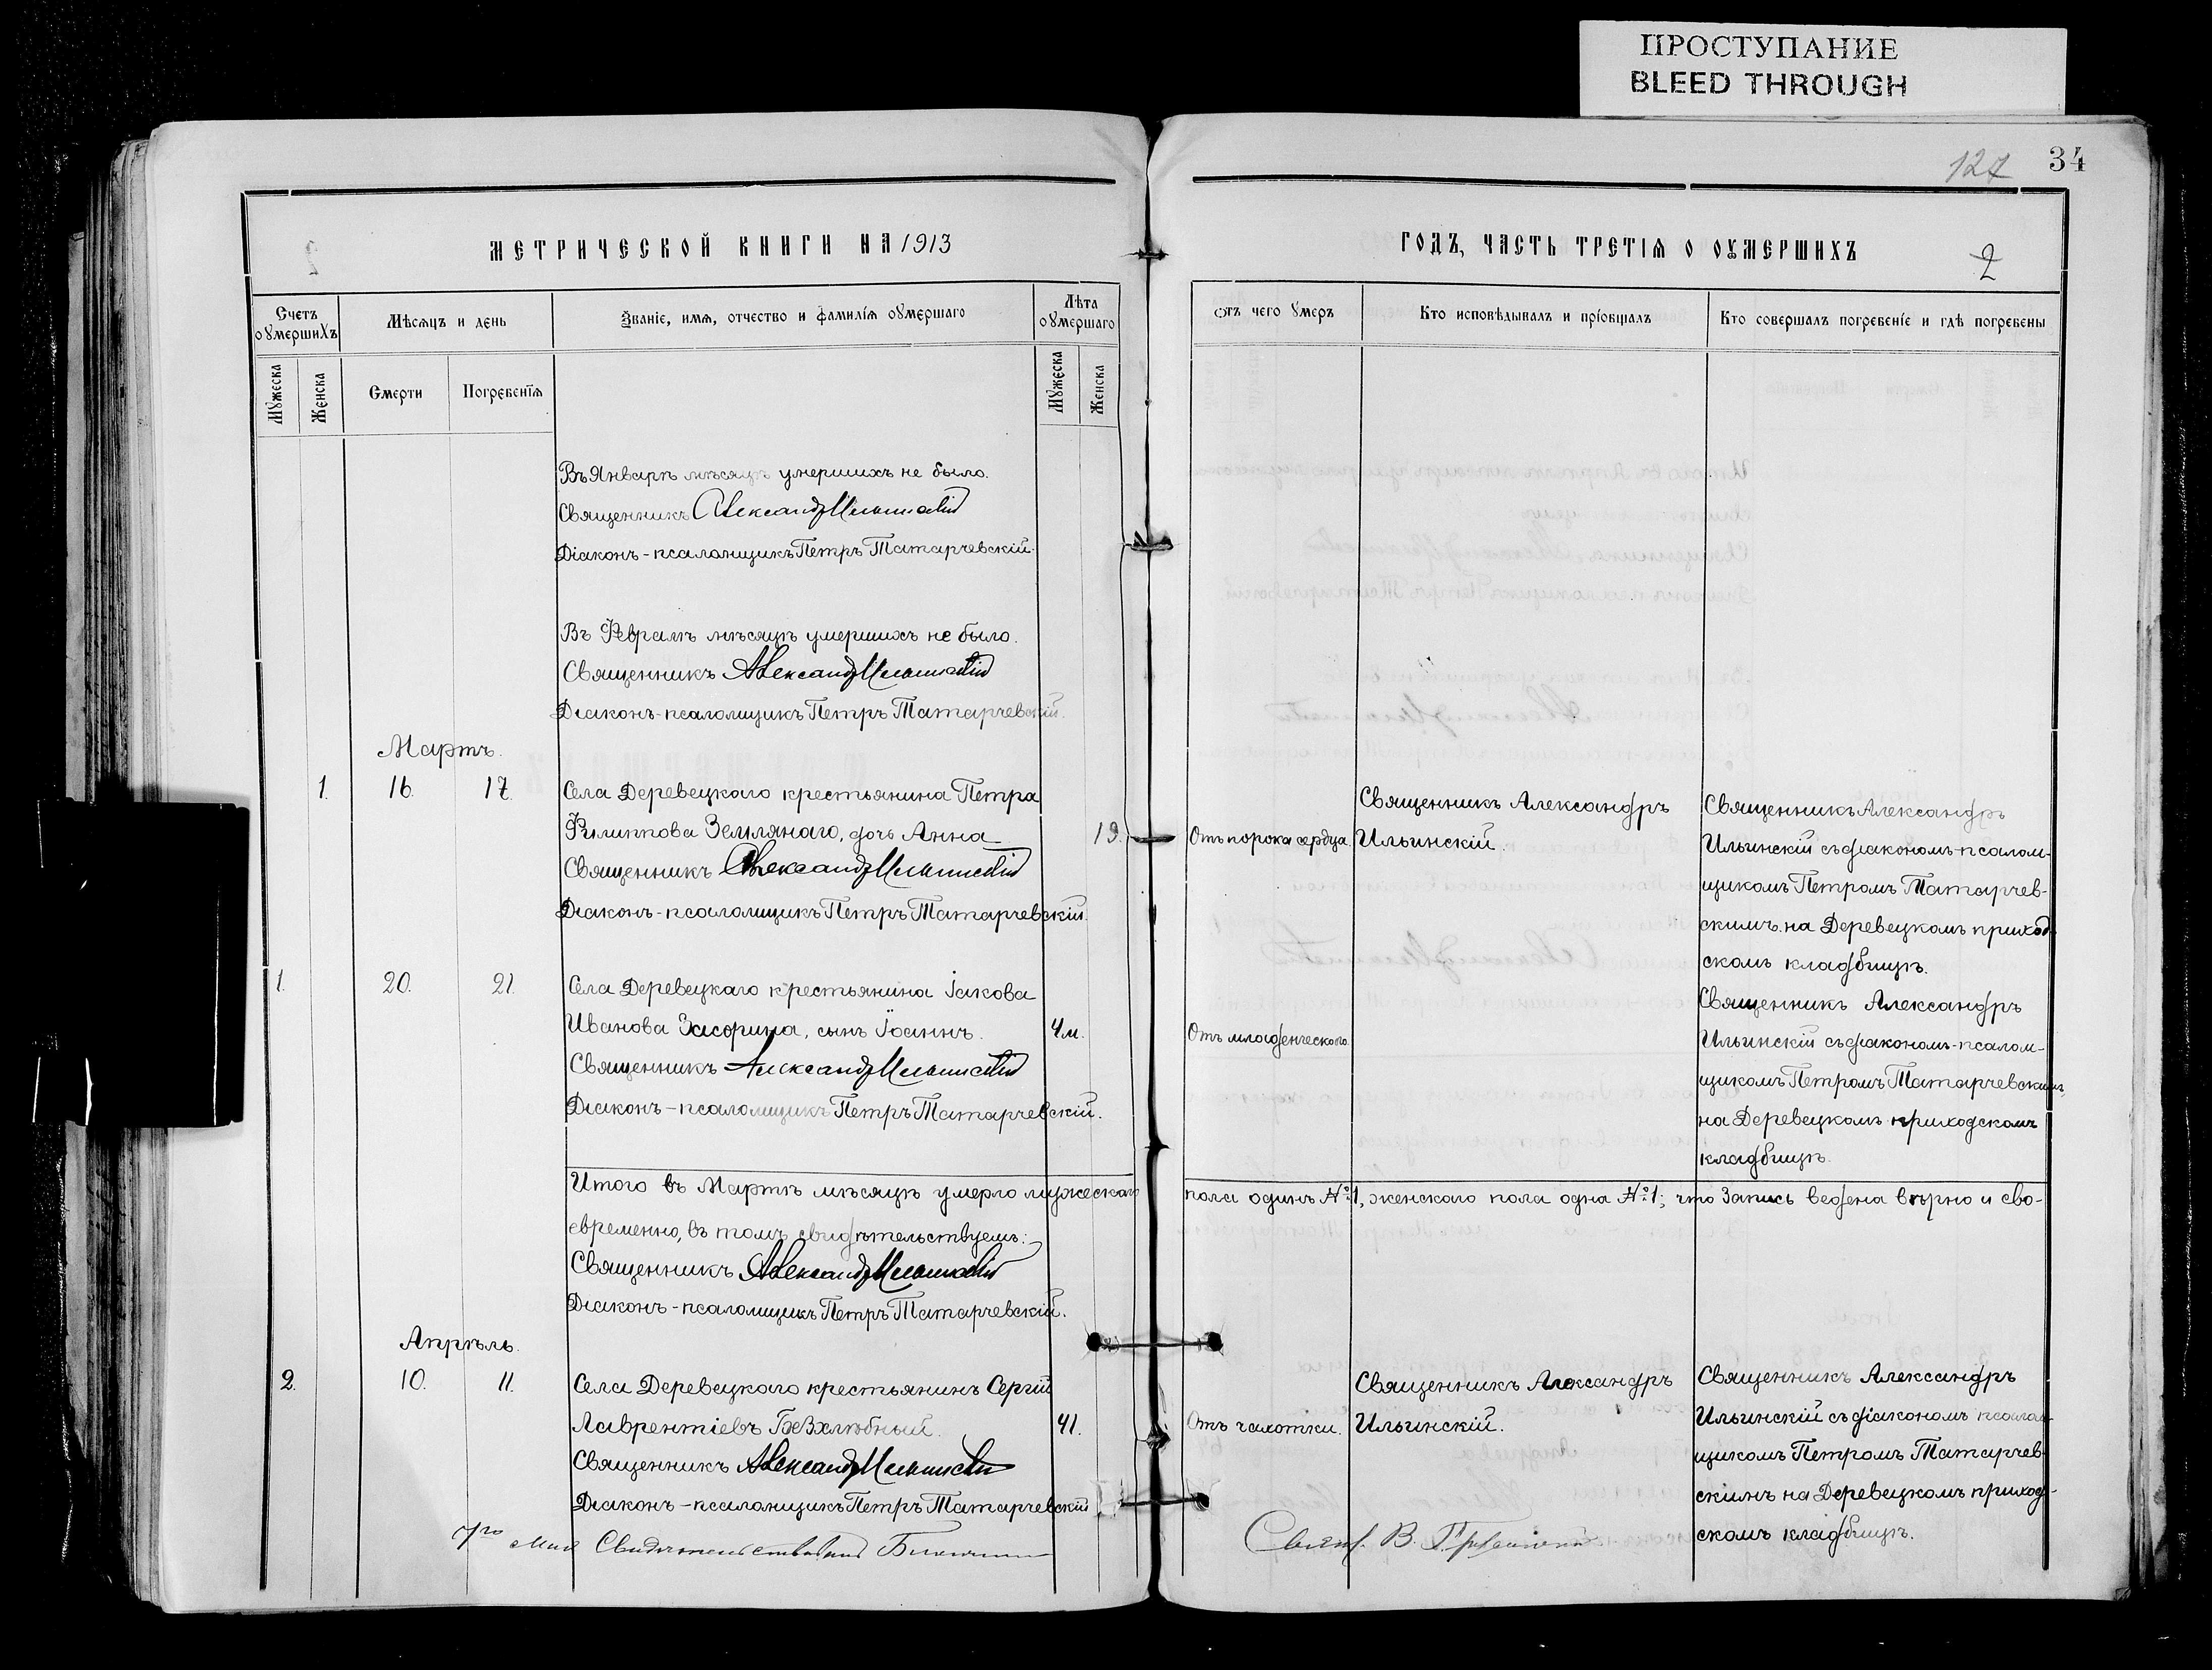 ПРОСТУПАНИЕ
BLEED THROUGH
127
34
МЕТРИЧЕСКОЙ КНИГИ НА 1913
ГОДЪ, ЧАСТЬ ТРЕТІѦ О ОУМЕРШИХЪ
2
Счетъ оумершихъ
Мѣсяцъ и день
Званіе, имѧ, отчество и фамиліѧ оумершаго
Лѣта оумершаго
Отъ чего умеръ
Кто исповѣдывалъ и пріобщалъ
Кто совершалъ погребеніе и гдѣ погребены
Мужеска
Женска
Смерти
Погребеніѧ
Мужеска
Женска
Въ Январѣ мѣсяцѣ умершихъ не было.
Священникъ Александръ Ильинскій
Діаконъ-псаломщикъ Петръ Татарчевскій.
Въ Февралѣ мѣсяцѣ умершихъ не было.
Священникъ Александръ Ильинскій
Діаконъ-псаломщикъ Петръ Татарчевскій.
Мартъ.
1. 16. 17. Села Деревецкаго крестьянина Петра
Филиппова Землянаго, дочь Анна
19.
Священникъ Александръ Ильинскій
Діаконъ-псаломщикъ Петръ Татарчевскій.
Отъ порока сердца.
Священникъ Александръ
Ильинскій.
Священникъ Александръ
Ильинскій съ діакономъ-псалом-
щикомъ Петромъ Татарчев-
скимъ на Деревецкомъ приход-
скомъ кладбищѣ.
1. 20. 21. Села Деревецкаго крестьянина Іакова
Иванова Засорина, сынъ Іоаннъ.
4 м.
Священникъ Александръ Ильинскій
Діаконъ-псаломщикъ Петръ Татарчевскій.
Отъ младенческаго.
Священникъ Александръ
Ильинскій съ діакономъ-псалом-
щикомъ Петромъ Татарчевскимъ,
на Деревецкомъ приходскомъ
кладбищѣ.
Итого въ Мартѣ мѣсяцѣ умерло мужескаго пола одинъ №1, женскаго пола одна №1; что запись ведена вѣрно и сво-
евременно, въ томъ свидѣтельствуемъ:
Священникъ Александръ Ильинскій
Діаконъ-псаломщикъ Петръ Татарчевскій.
Апрѣль.
2. 10. 11. Села Деревецкаго крестьянинъ Сергій
Лаврентіевъ Безхлѣбный.
41.
Священникъ Александръ Ильинскій
Діаконъ-псаломщикъ Петръ Татарчевскій
Отъ чахотки.
Священникъ Александръ
Ильинскій.
Священникъ Александръ
Ильинскій съ діакономъ псалом-
щикомъ Петромъ Татарчев-
скимъ на Деревецкомъ приход-
скомъ кладбищѣ.
7го Мая Свидѣтельствовалъ
Свящ. В.